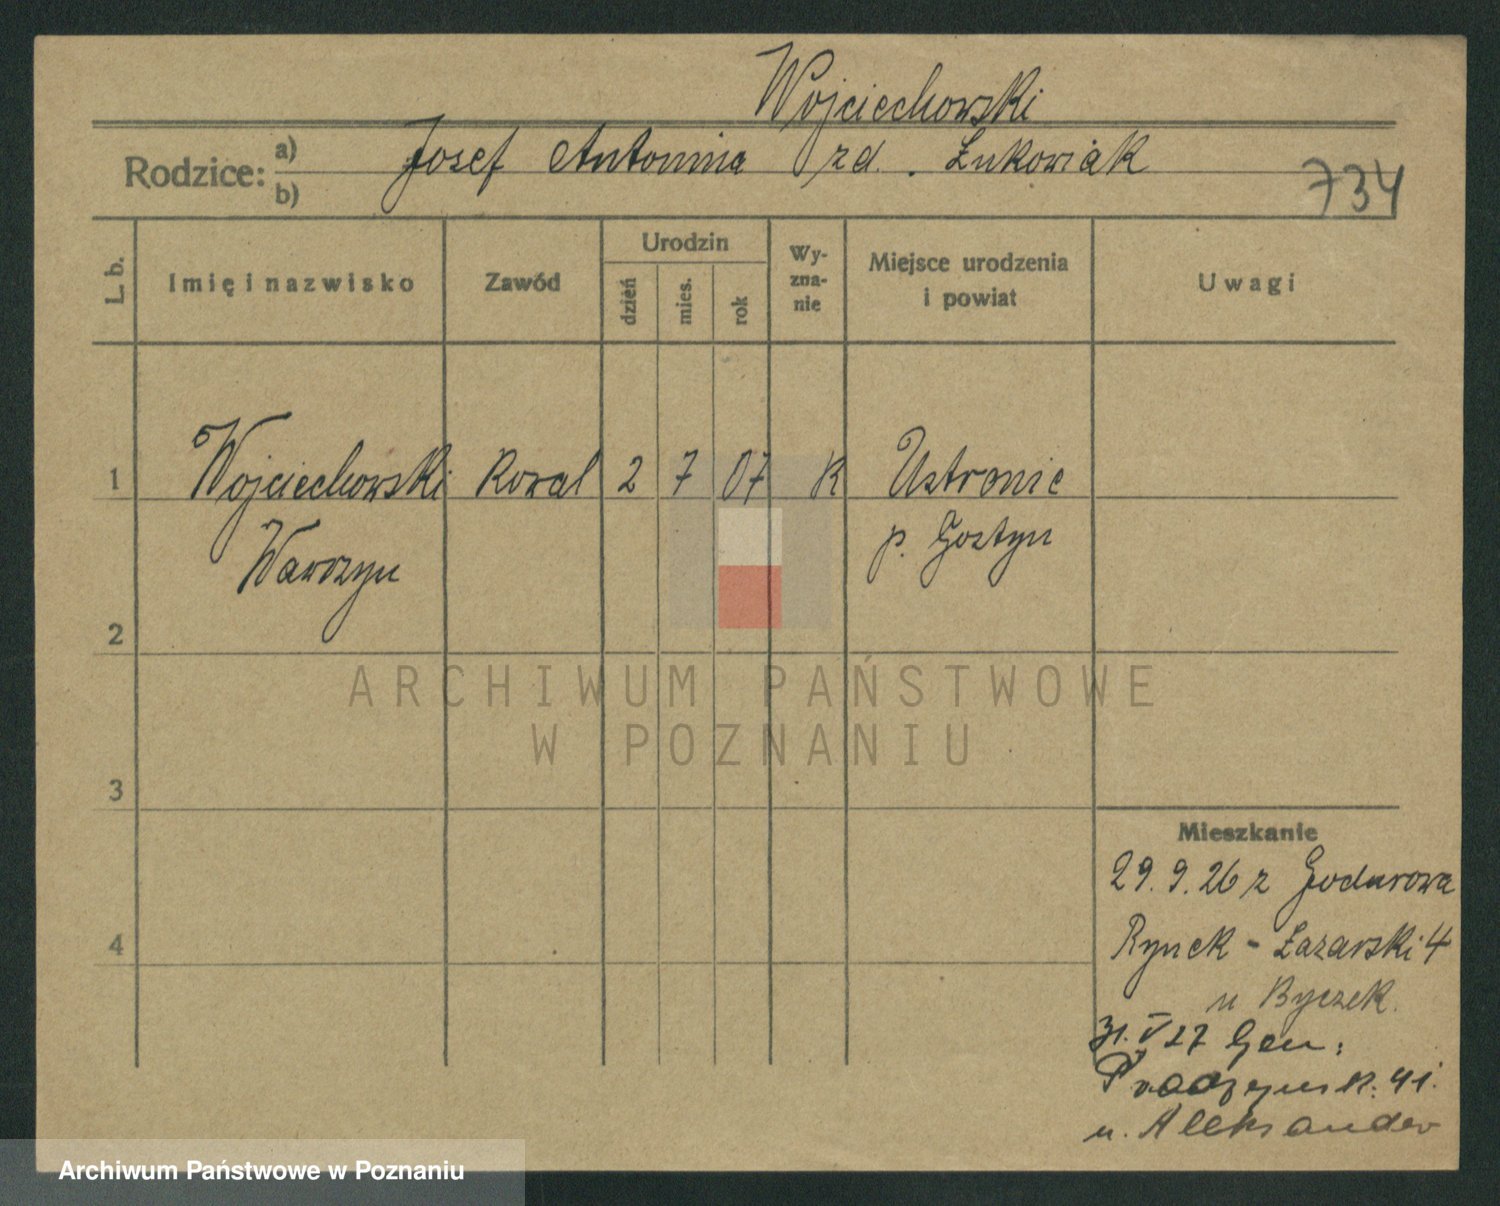 Wojciechowski
Rodzice: a) Josef Antonina zd. Łukowiak
b)
734
L. b.
Imię i nazwisko
Zawód
Urodzin
dzień
mies.
rok
Wy-
zna-
nie
Miejsce urodzenia
i powiat
Uwagi
1 Wojciechowski Kowal 2 7 07 K Ustronie
Wawrzyn p. Gostyn
2
ARCHIWUM PAŃSTWOWE
W POZNANIU
3
Mieszkanie
29. 9. 26 z Godurowa
4 Rynek - Łazarski 4
u Byczek.
31. V 27 Gen:
Prądzyńsk. 41.
u. Aleksander
Archiwum Państwowe w Poznaniu